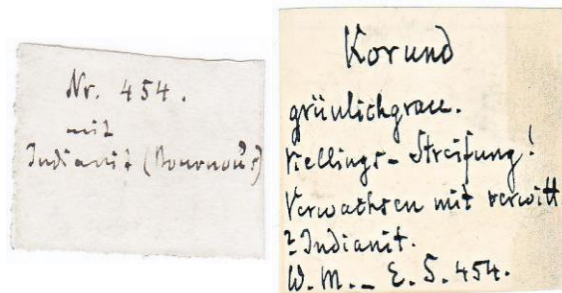 Nr. 454.
mit
Indianit (Bournon's)
Korund
grünlichgrau.
Viellings-Streifung!
Verwachsen mit verwitt
? Indianit.
W. M. – E. S. 454.